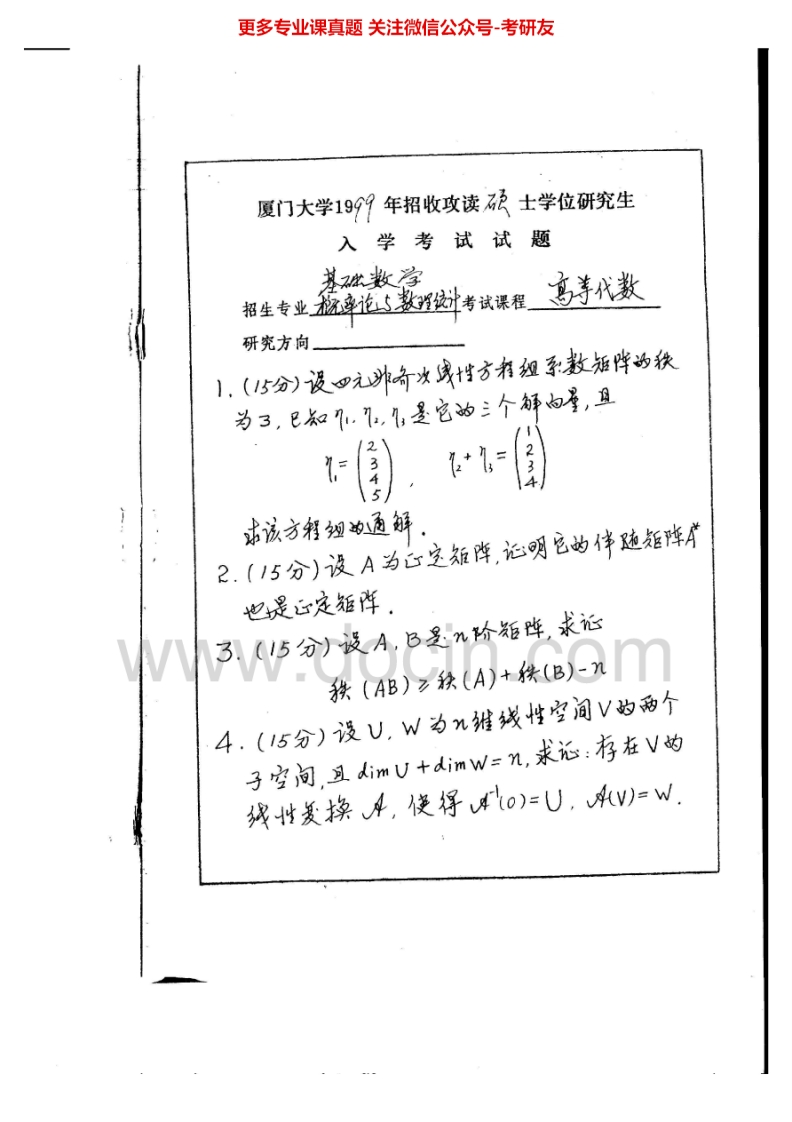 更多专业课真题 关注微信公众号-考研友
厦门大学1999年招收攻读硕士学位研究生
入学考试试题
基础数学
招生专业 概率论与数理统计 考试课程 高等代数
研究方向
1.(15分)设四元非齐次线性方程组系数矩阵的秩
为3,已知η₁,η₂,η₃是它的三个解向量,且
η₁=(2 3 4 5), η₂+η₃=(1 2 3 4)
求该方程组的通解.
2.(15分)设A为正定矩阵,证明它的伴随矩阵A*
也是正定矩阵.
3.(15分)设A,B是n阶矩阵,求证
www.docin.com
秩(AB)≥秩(A)+秩(B)-n
4.(15分)设U,W为n维线性空间V的两个
子空间,且dimU+dimW=n,求证:存在V的
线性变换A,使得A⁻¹(0)=U,A(V)=W.